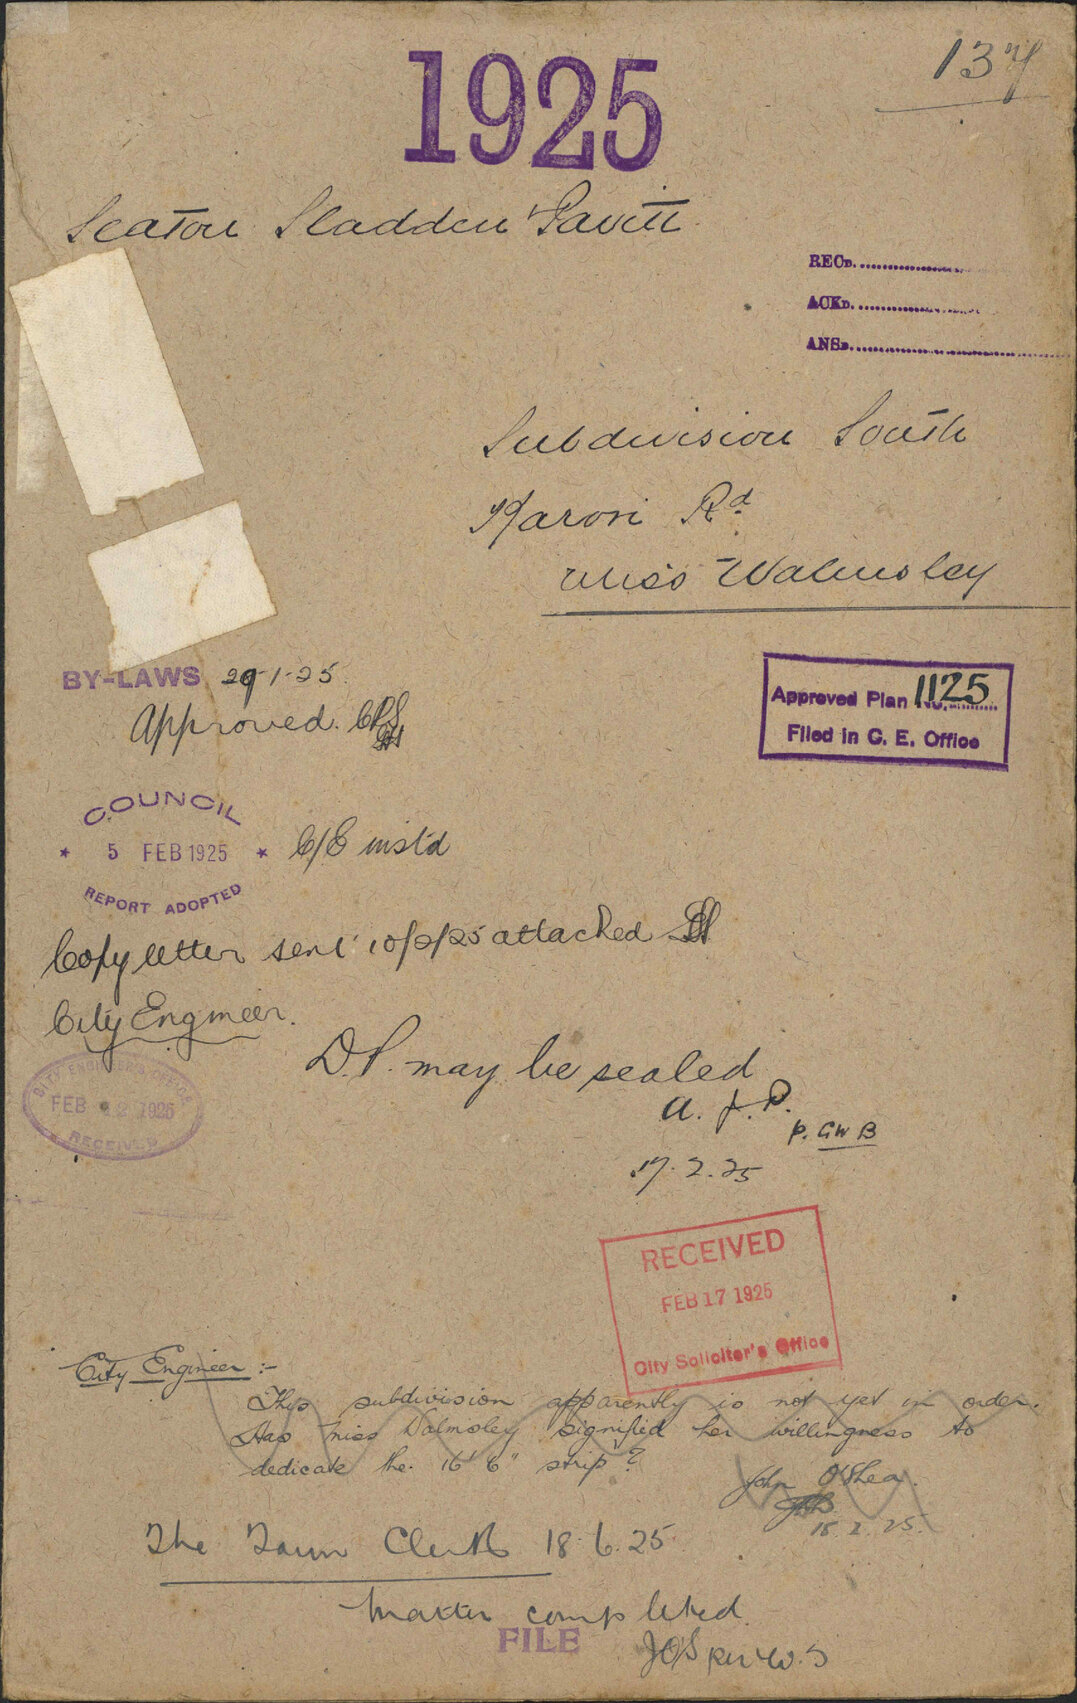 1925
137
Seaton Sladden & Pavitt
RECD.
ACKD.
ANSD.
Subdivision South
Karori Rd
Miss Walmsley
BY-LAWS 29-1-25
Approved
Approved Plan No. 1125
Filed in C. E. Office
COUNCIL
5 FEB 1925
REPORT ADOPTED
C/E instd
Copy letter sent 10/2/25 attached
City Engineer.
CITY ENGINEER'S OFFICE
FEB 12 1925
RECEIVED
D.P. may be sealed
A. J. P.
p. GWB
17.2.25
RECEIVED
FEB 17 1925
City Solicitor's Office
City Engineer :-
This subdivision apparently is not yet in order.
Has Miss Walmsley signified her willingness to
dedicate the 16' 6" strip?
John O'Shea.
18.2.25.
The Town Clerk 18.6.25
Matter completed
FILE
JO'S